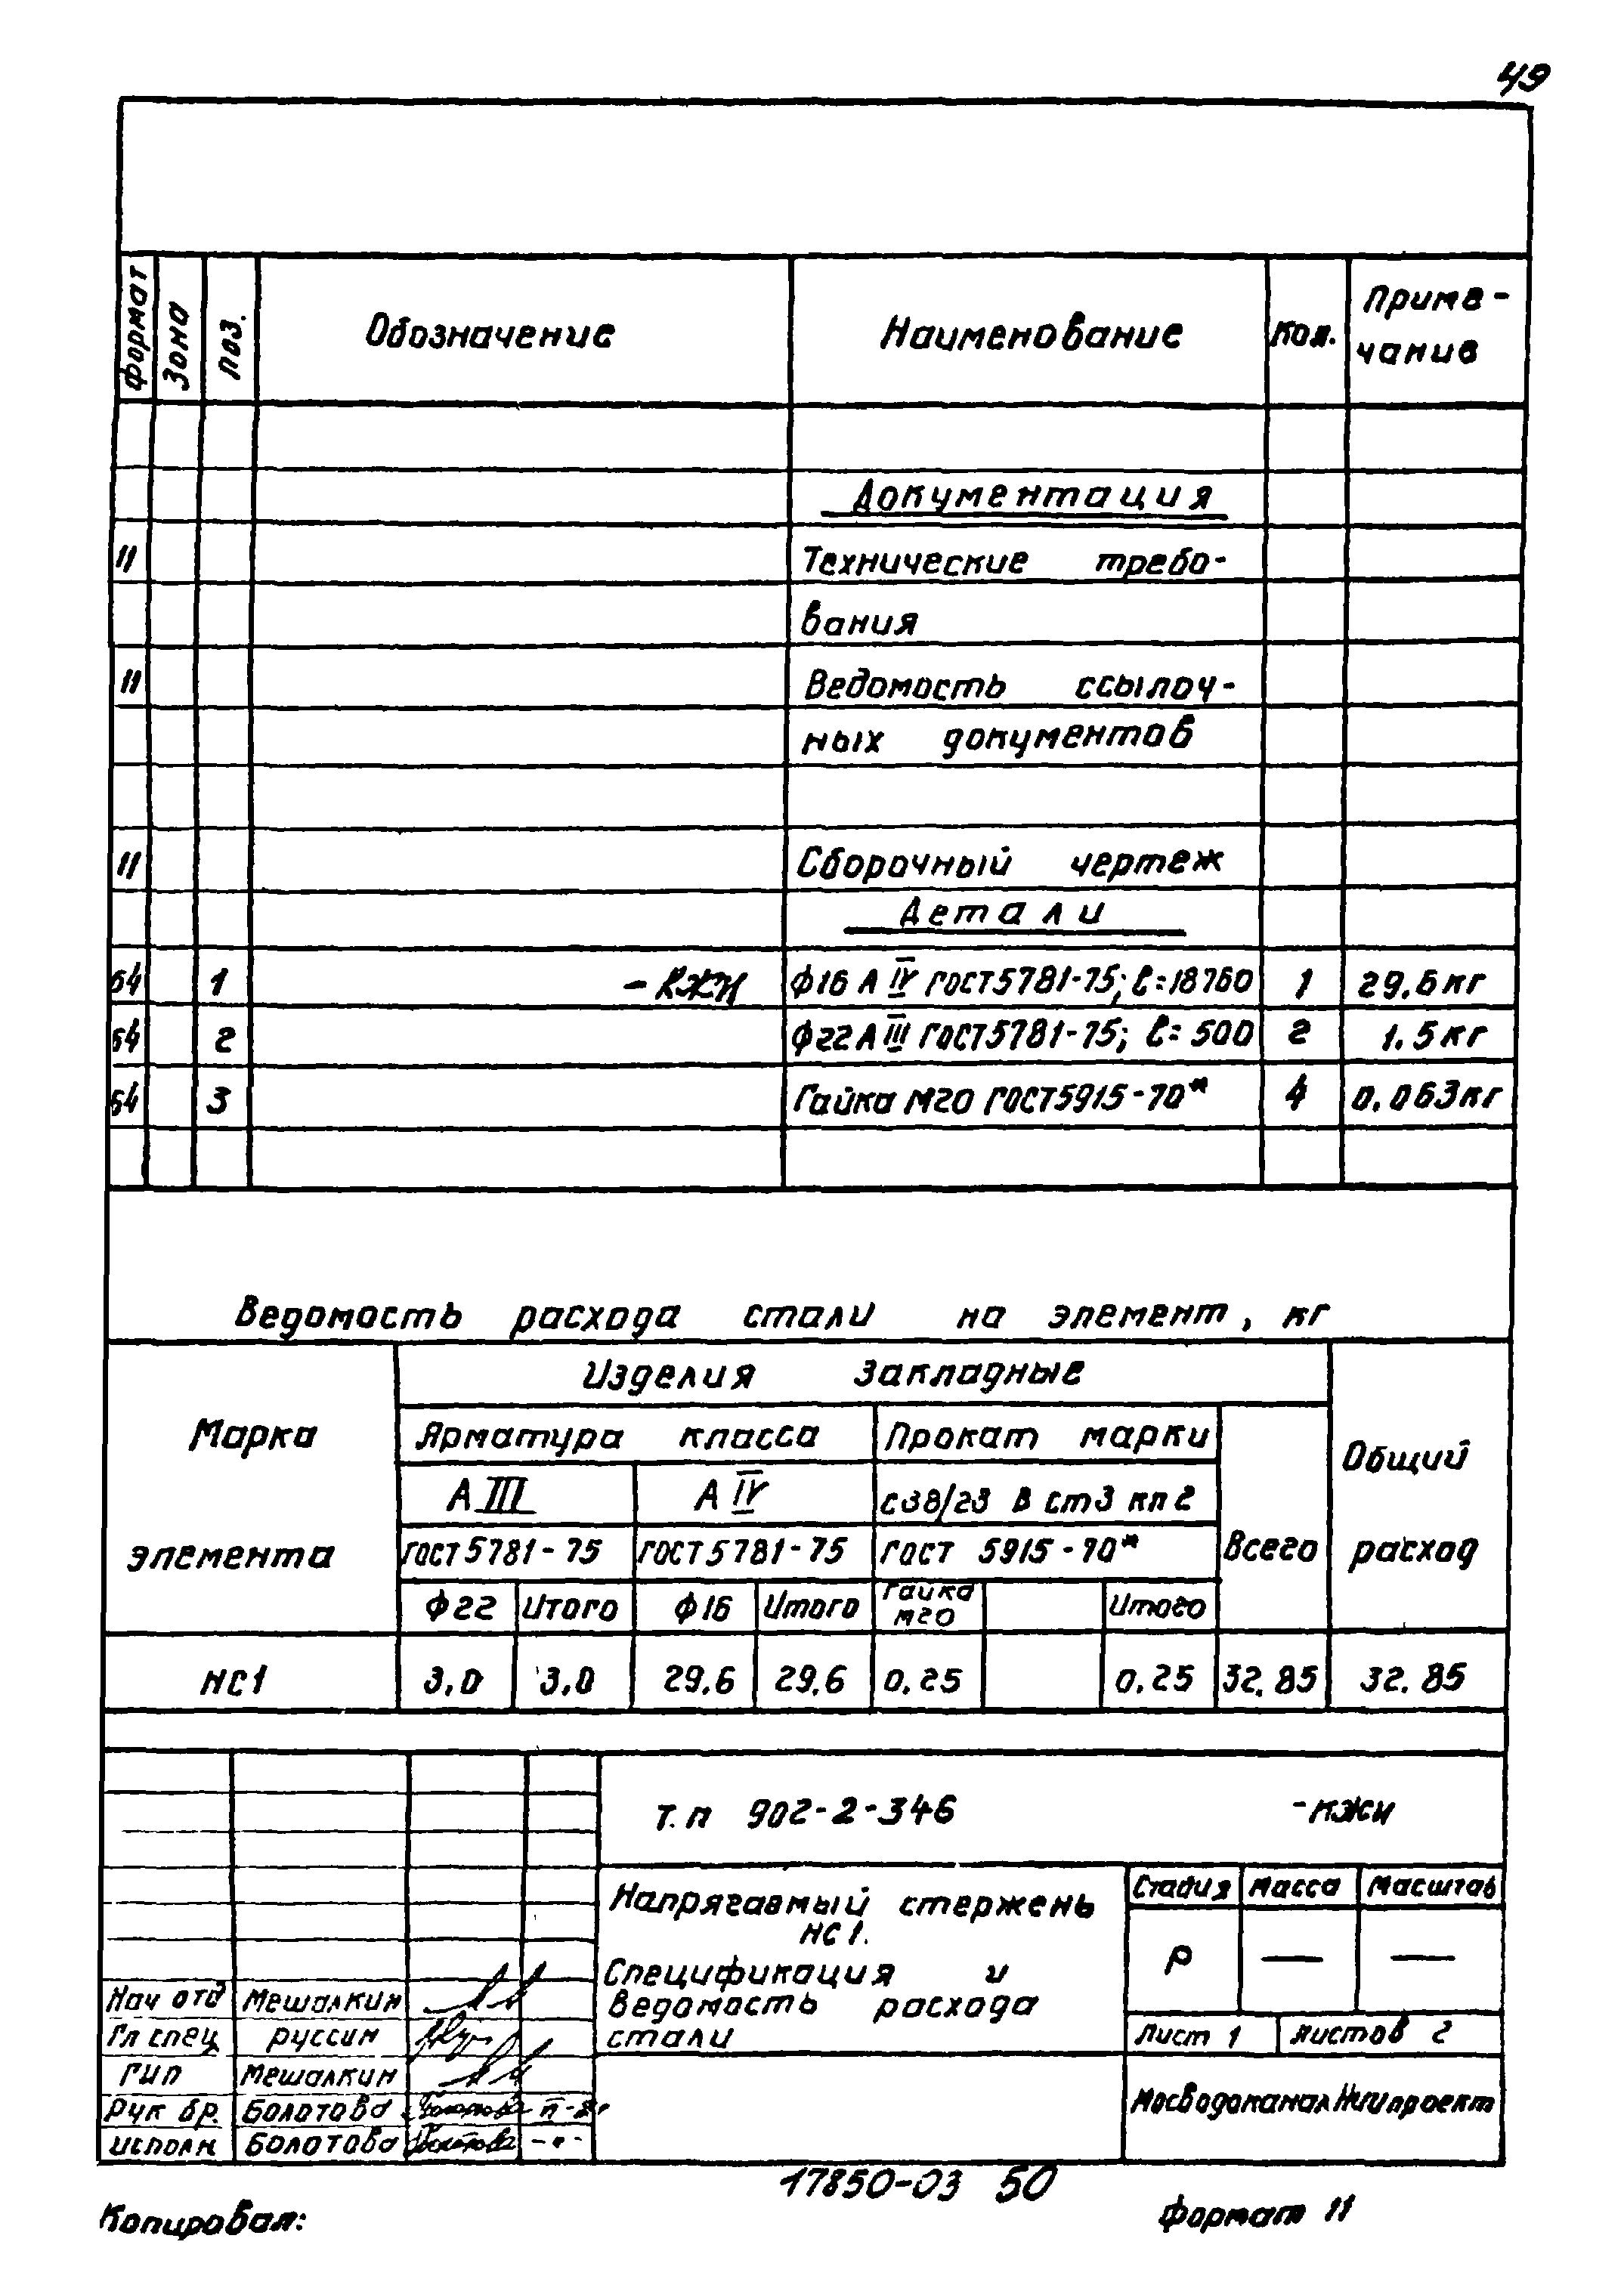 49
Формат Зона Поз. Обозначение Наименование Кол. Приме-
чание
Документация
11 Технические требо-
вания
11 Ведомость ссылоч-
ных документов
11 Сборочный чертеж
Детали
Б4 1 -КЖИ Ф16 А IV ГОСТ 5781-75; ℓ=18760 1 29.6 кг
Б4 2 Ф22 А III ГОСТ 5781-75; ℓ= 500 2 1.5 кг
Б4 3 Гайка М20 ГОСТ 5915-70* 4 0.063 кг
Ведомость расхода стали на элемент, кг
Марка элемента
Изделия закладные
Арматура класса Прокат марки
Всего
Общий расход
А III А IV с38/23 В ст3 кп 2
ГОСТ 5781-75 ГОСТ 5781-75 ГОСТ 5915-70*
Ф22 Итого Ф16 Итого Гайка М20 Итого
НС1 3,0 3,0 29.6 29.6 0.25 0.25 32.85 32.85
т.п 902-2-346 -КЖИ
Напрягаемый стержень
НС1.
Спецификация и
ведомость расхода
стали
Стадия Масса Масштаб
Р — —
Лист 1 Листов 2
МосводоканалНИИпроект
Нач отд Мешалкин
Гл спец Руссин
ГИП Мешалкин
Рук бр. Болотова
Исполн Болотова -"-
17850-03 50
Копировал:
Формат 11